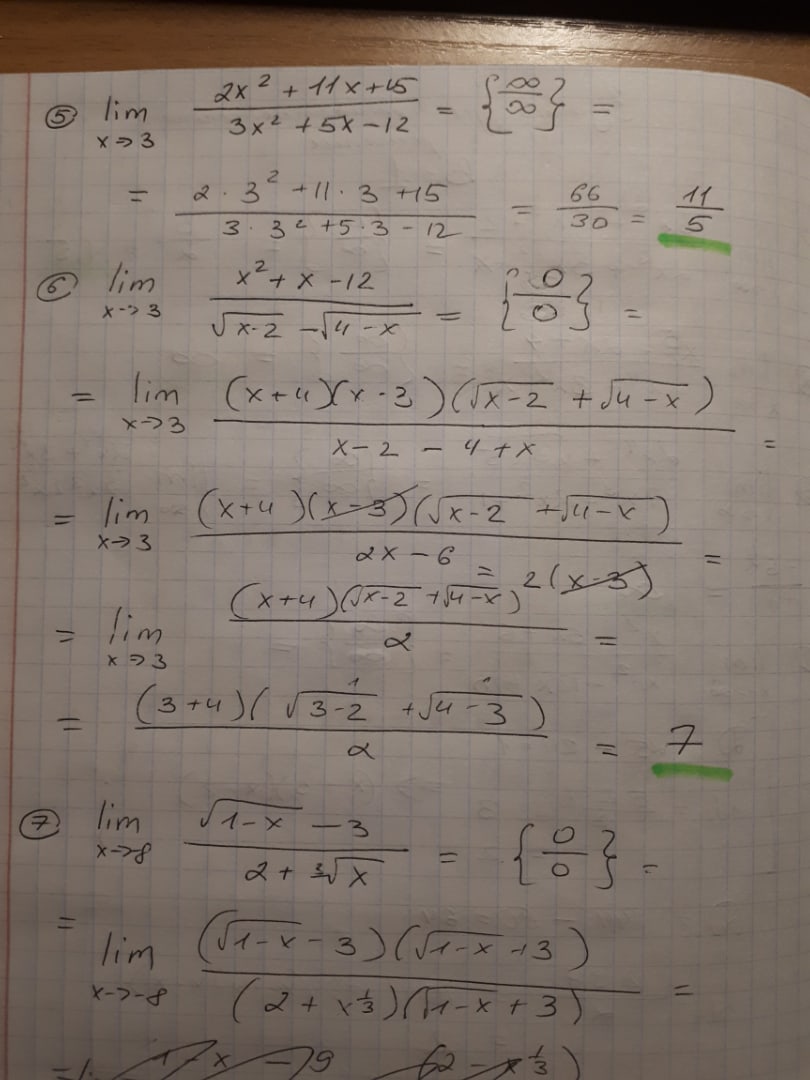 ⑤ lim x→3 (2x² + 11x + 15)/(3x² + 5x − 12) = {∞/∞} =
= (2 · 3² + 11 · 3 + 15)/(3 · 3² + 5 · 3 − 12) = 66/30 = 11/5
⑥ lim x→3 (x² + x − 12)/(√(x−2) − √(4−x)) = {0/0} =
= lim x→3 (x+4)(x−3)(√(x−2) + √(4−x))/(x−2 − 4+x) =
= lim x→3 (x+4)(x−3)(√(x−2) + √(4−x))/(2x−6 = 2(x−3)) =
= lim x→3 (x+4)(√(x−2) + √(4−x))/2 =
= (3+4)(√(3−2) 1 + √(4−3) 1)/2 = 7
⑦ lim x→8 (√(1−x) − 3)/(2 + ³√x) = {0/0} =
= lim x→−8 (√(1−x) − 3)(√(1−x) + 3)/((2 + x^⅓)(√(1−x) + 3)) =